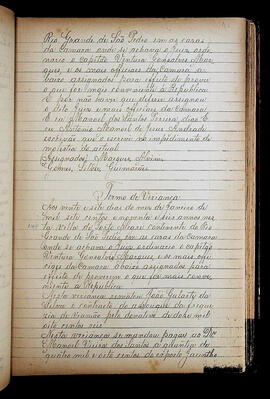 Rio Grande de São Pedro em as casas
da Camara onde se achava o Juiz ordi
nario o capitão Ventura Gonsalves Mar
ques e os mais officiaes da Camara a
baixo assignados para effeito de prover
o que for mais conveniente á Republica
E por não haver que deferir assignou
o dito Juiz e mais officiaes da Camara
E eu Manoel dos Santos Pereira, digo E
eu Antonio Manoel de Jesus Andrade
escrivão que o escrevi no impedimento de
molestia do actual
Assignados: Marques
Gomes, Silva, Guimarães
Termo de Vereança
Aos vinte e sete dias do mez de Janeiro de
mil sete centos e noventa e seis annos nes
ta Villa de Porto Alegre continente do Rio
Grande de São Pedro em as casas da Camara
onde se achava o Juiz ordinario o capitão
Ventura Gonsalves Marques e os mais offi
ciaes da Camara abaixo assignados para
effeito de proverem o que for mais conve
niente á Republica
Nesta vereança rematou João Gularte da
Silva o contracto de da fregue
zia de Viamão pelo donativo de doze mil
oito centos reis
Nesta vereança se mandou pagar ao Dr.
Manoel Vieira dos Santos a quantia de
quatro mil e oito centos do exposto Jacintho